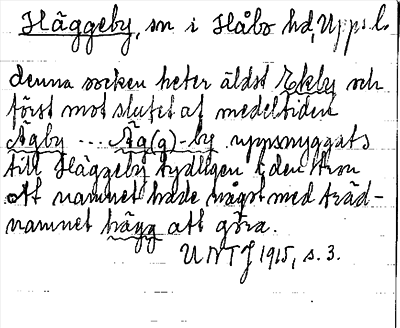 Häggeby, sn i Håbo hd, Uppsl.
denna socken heter äldst Ekby och
först mot slutet af medeltiden
Ägby --- Äg(g)-by uppsnyggats
till Häggeby tydligen i den tron
att namnet hade något med träd-
namnet hägg att göra.
UNTJ 1915, s. 3.